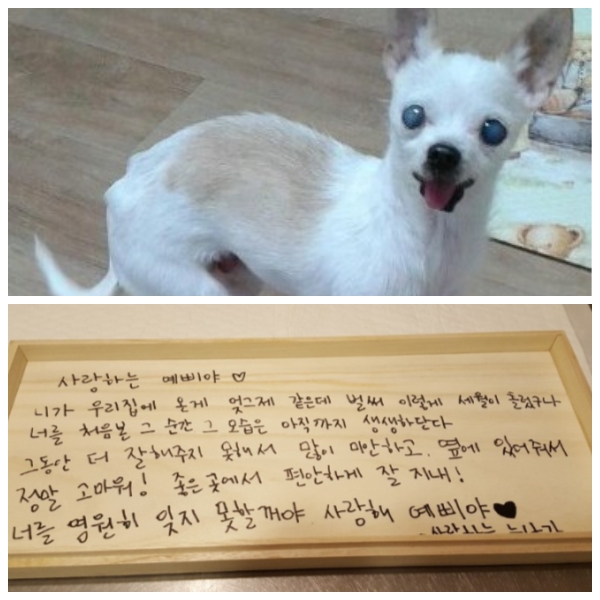 사랑하는 예삐야♡
니가 우리집에 온게 엊그제 같은데 벌써 이렇게 세월이 흘렀구나
너를 처음본 그 순간 그 모습은 아직까지 생생하단다
그동안 더 잘해주지 못해서 많이 미안하고. 옆에 있어줘서
정말 고마워! 좋은곳에서 편안하게 잘 지내!
너를 영원히 잊지 못할꺼야 사랑해 예삐야♥